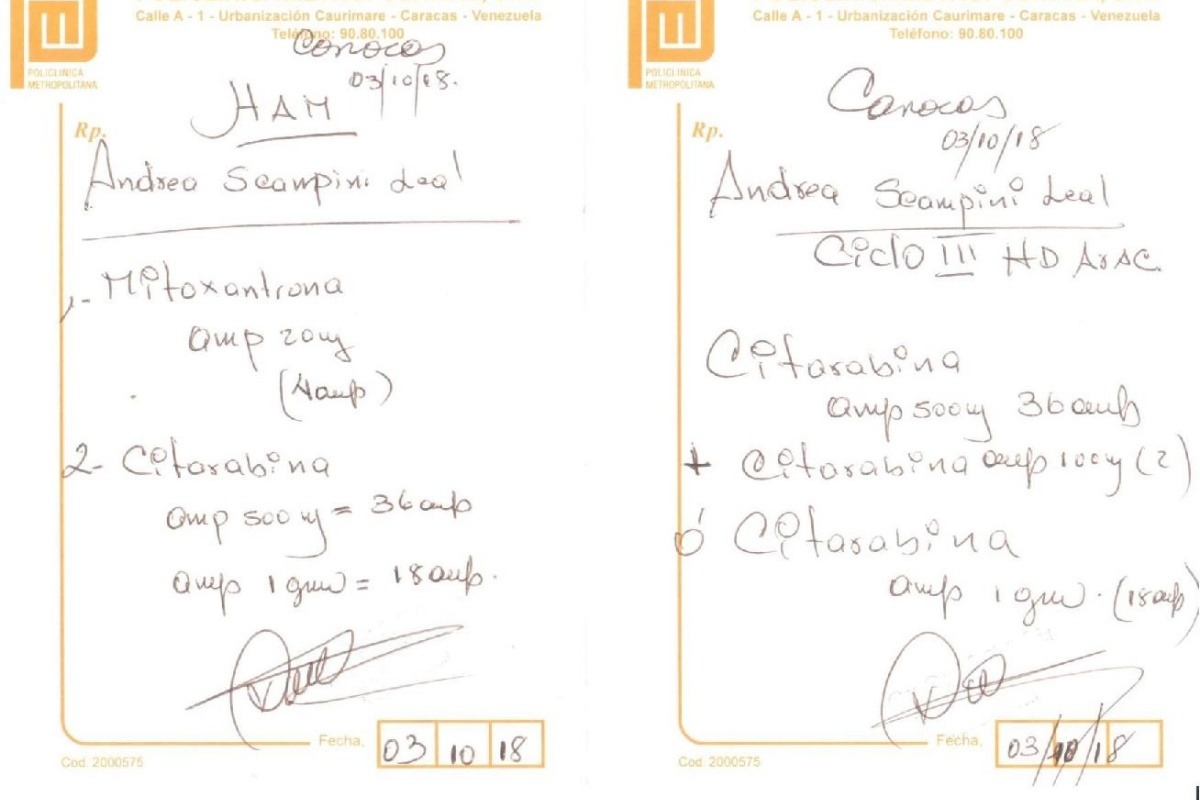 Calle A - 1 - Urbanización Caurimare - Caracas - Venezuela
Teléfono: 90.80.100
POLICLINICA
METROPOLITANA
Caracas
03/10/18.
HAM
Rp.
Andrea Scampini Leal
1- Mitoxantrona
amp 20mg
(4amp)
2- Citarabina
amp 500mg = 36amp
amp 1gm = 18amp.
Fecha, 03 10 18
Cod. 2000575
Calle A - 1 - Urbanización Caurimare - Caracas - Venezuela
Teléfono: 90.80.100
POLICLINICA
METROPOLITANA
Caracas
03/10/18
Rp.
Andrea Scampini Leal
Ciclo III HD ArAC.
Citarabina
amp 500mg 36amp
+ Citarabina amp 100mg (2)
ó Citarabina
amp 1gm. (18amp)
Fecha, 03/10/18
Cod. 2000575